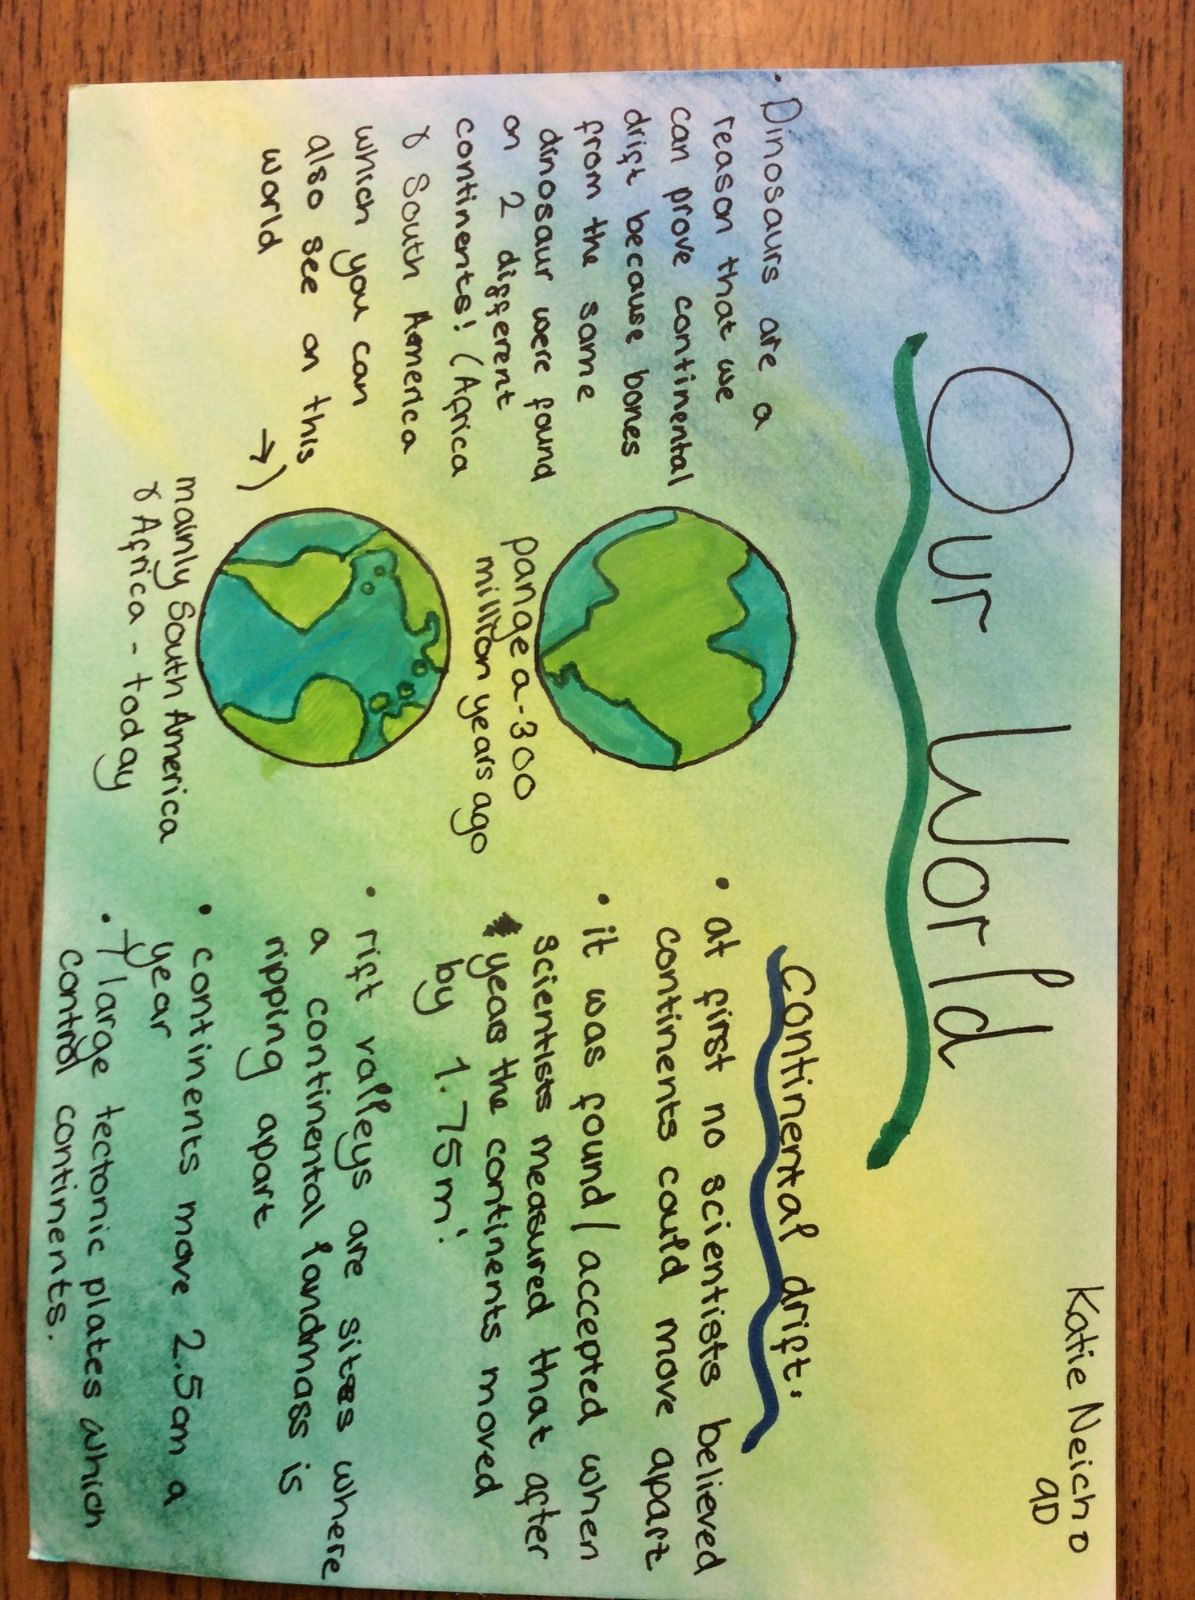 Katie Neicho
9D
Our World
• Dinosaurs are a
reason that we
can prove continental
drift because bones
from the same
dinosaur were found
on 2 different
continents! (Africa
& South America
which you can
also see on this
world →)
pangea-300
million years ago
mainly South America
& Africa - today
Continental drift:
• at first no scientists believed
continents could move apart
• it was found/accepted when
scientists measured that after
years the continents moved
by 1.75m!
• rift valleys are sites where
a continental landmass is
ripping apart
• continents move 2.5cm a
year
• 7 large tectonic plates which
control continents.